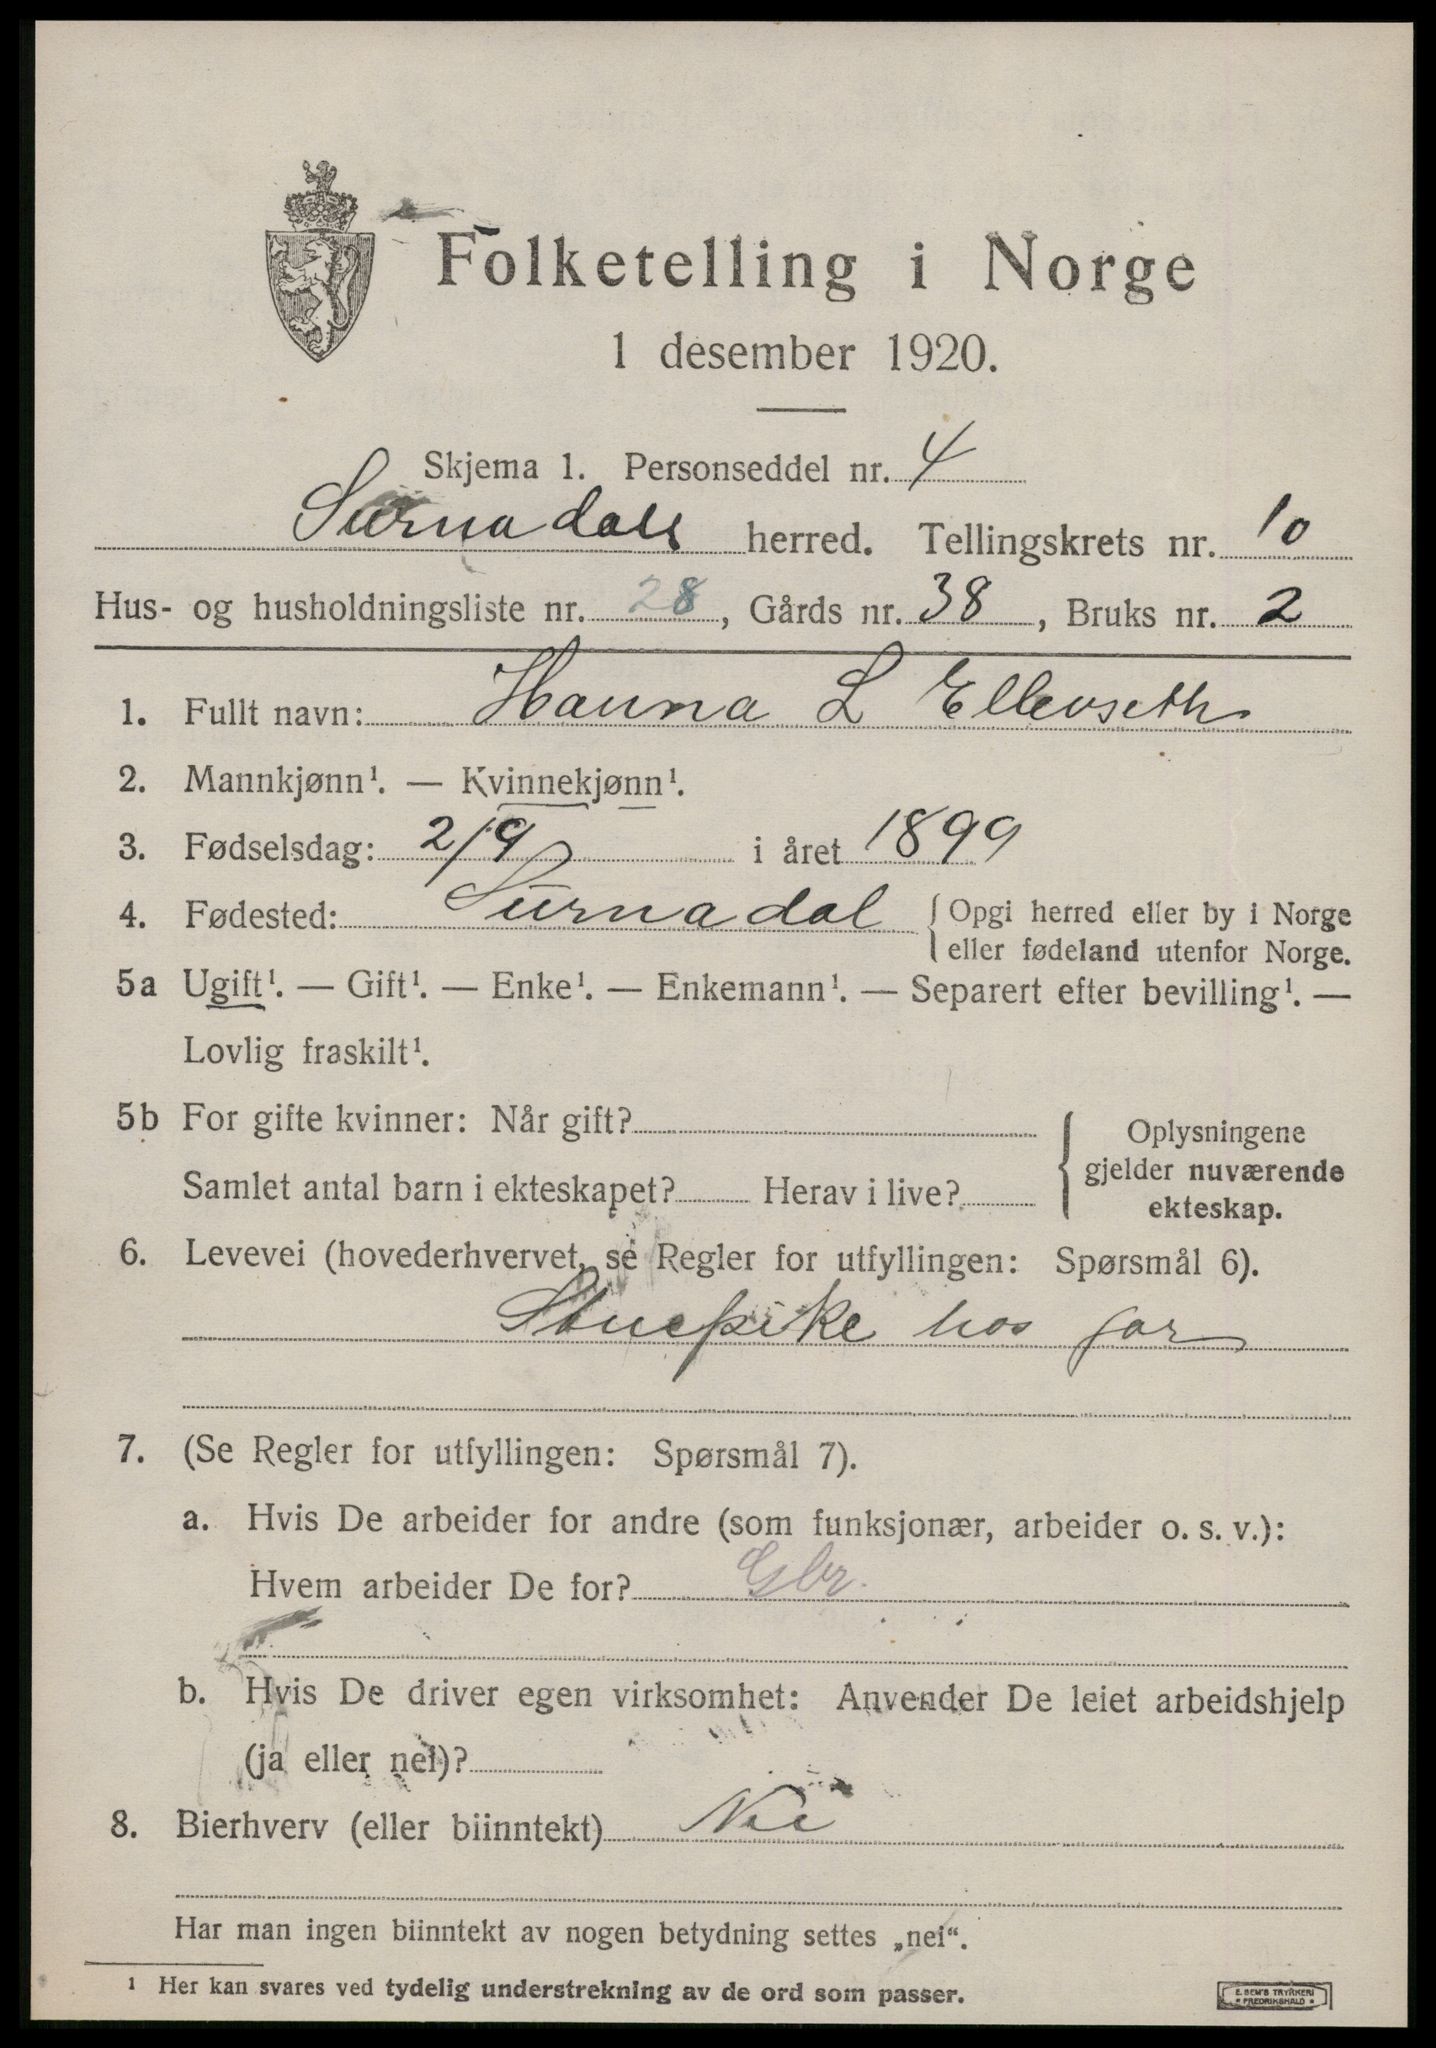 Folketelling i Norge
1 desember 1920.
Skjema 1. Personseddel nr. 4
Surnadals herred. Tellingskrets nr. 10
Hus- og husholdningsliste nr. 28, Gårds nr. 38, Bruks nr. 2
1. Fullt navn: Hanna L Ellevseth
2. Mannkjønn¹. — Kvinnekjønn¹.
3. Fødselsdag: 2/9 i året 1899
4. Fødested: Surnadal { Opgi herred eller by i Norge
eller fødeland utenfor Norge.
5a Ugift¹. — Gift¹. — Enke¹. — Enkemann¹. — Separert efter bevilling¹. —
Lovlig fraskilt¹.
5b For gifte kvinner: Når gift?
Samlet antal barn i ekteskapet? Herav i live?
{ Oplysningene
gjelder nuværende
ekteskap.
6. Levevei (hovederhvervet, se Regler for utfyllingen: Spørsmål 6).
Stuepike hos far
7. (Se Regler for utfyllingen: Spørsmål 7).
a. Hvis De arbeider for andre (som funksjonær, arbeider o. s. v.):
Hvem arbeider De for? Gbr.
b. Hvis De driver egen virksomhet: Anvender De leiet arbeidshjelp
(ja eller nei)?
8. Bierhverv (eller biinntekt) Nei
Har man ingen biinntekt av nogen betydning settes „nei“.
¹ Her kan svares ved tydelig understrekning av de ord som passer.
E. SEM'S TRYKKERI
* FREDRIKSHALD *